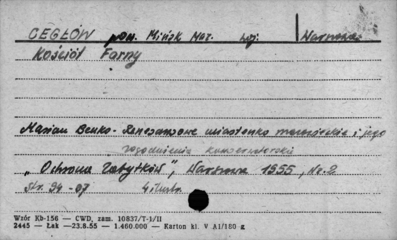 CEGŁÓW pow. Mińsk Maz. woj. Warszawa
Kościół Farny
Marian Benko - Renesansowe miasteczko mazowieckie i jego
zagadnienia konserwatorskie
"Ochrona Zabytków", Warszawa 1955, Nr. 2
str. 94-07 4 ilustr.
Wzór Kb-156 — CWD, zam. 10837/T-1/II
2445 — Łak —23.8.55 — 1.460.000 — Karton kl. V A1/180 g